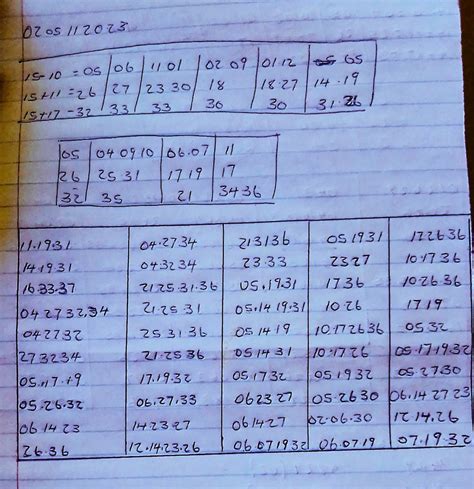 02 05 11 2023
15-10=05 | 06 | 11 01 | 02 09 | 01 12 | 05
15+11=26 | 27 | 23 30 | 18 | 18.27 | 14.19
15+17=32 | 33 | 33 | 30 | 30 | 31.26
05 | 04 09 10 | 06.07 | 11
26 | 25 31 | 17 19 | 17
32 | 35 | 21 | 34 36
11.19.31 | 04.27.34 | 213136 | 05 1931 | 172636
14.19.31 | 04.32 34 | 23.33 | 2327 | 10.17 36
16 33.37 | 21.25.31.36 | 05.19.31 | 1736 | 10.26 36
04 27 32.34 | 21.25 31 | 05.14 19.31 | 10.26 | 17 19
04 27 32 | 25 31 36 | 05.14 19 | 10.17 26 36 | 05 32
27 32 34 | 21.25 36 | 05 14 31 | 10.17 26 | 05.17.19 32
05.17.19 | 17.19.32 | 05.17 32 | 05 19 32 | 05.27 30
05.26.32 | 06.27.33 | 06 23 27 | 05.26 30 | 06.14 27 23
06 14 23 | 14 23.27 | 06 14 27 | 02.06.30 | 12.14.26
26.36 | 12.14.23.26 | 06 07 19 32 | 06.07 19 | 07.19.32